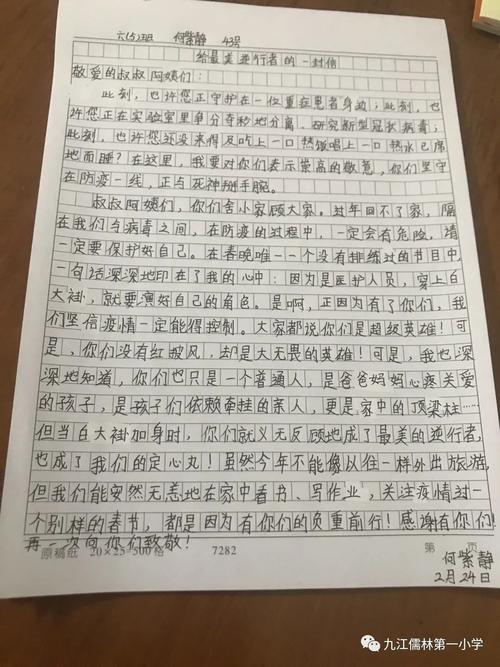 六(5)班 何紫静 43号
给最美逆行者的一封信
敬爱的叔叔阿姨们：
此刻，也许您正守护在一位重症患者身边；此刻，也
许您正在实验室里争分夺秒地分离、研究新型冠状病毒；
此刻，也许您还没来得及吃上一口热饭喝上一口热水已席
地而睡？在这里，我要对你们表示崇高的敬意，你们坚守
在防疫一线，正与死神掰手腕。
叔叔阿姨们，你们舍小家顾大家。过年回不了家，隔
在我们与病毒之间，在防疫的过程中，一定会有危险，请
一定要保护好自己。在春晚唯一一个没有排练过的节目中，
一句话深深地印在了我的心中：因为是医护人员，穿上白
大褂，就要演好自己的角色。是啊，正因为有了你们，我
们坚信疫情一定能得控制。大家都说你们是超级英雄！可
是，你们没有红披风，却是大无畏的英雄！可是，我也深
深地知道，你们也只是一个普通人，是爸爸妈妈心疼关爱
的孩子，是孩子们依赖牵挂的亲人，更是家中的顶梁柱……
但当白大褂加身时，你们就义无反顾地成了最美的逆行者，
也成了我们的定心丸！虽然今年不能像以往一样外出旅游，
但我们能安然无恙地在家中看书、写作业，关注疫情过一
个别样的春节，都是因为有你们的负重前行！感谢有你们！
再一次向你们致敬！
原稿纸 20×25=500格 7282 第 页
何紫静
2月24日
九江儒林第一小学